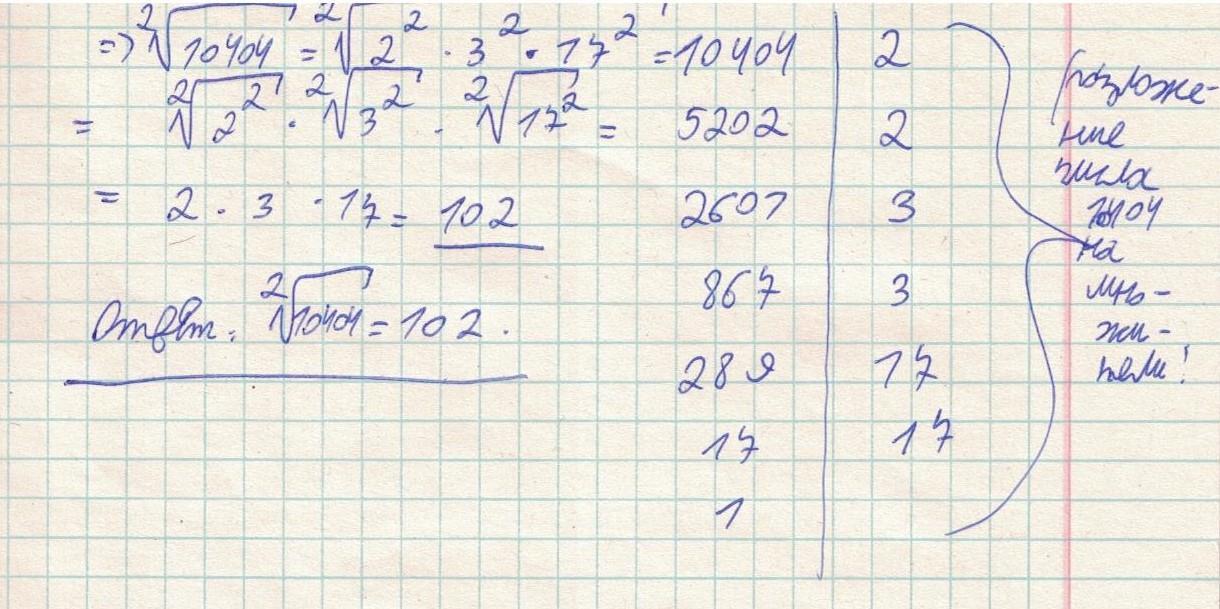 => ²√10404 = ²√2² · 3² · 17² =
= ²√2² · ²√3² · ²√17² =
= 2 · 3 · 17 = 102
Ответ: ²√10404 = 102.
10404 | 2
5202 | 2
2601 | 3
867 | 3
289 | 17
17 | 17
1
разложе-
ние
числа
10404
на
мно-
жи-
тели!